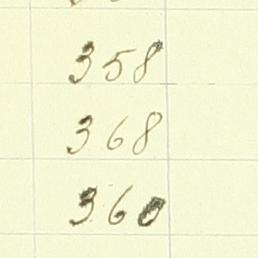 358
368
360